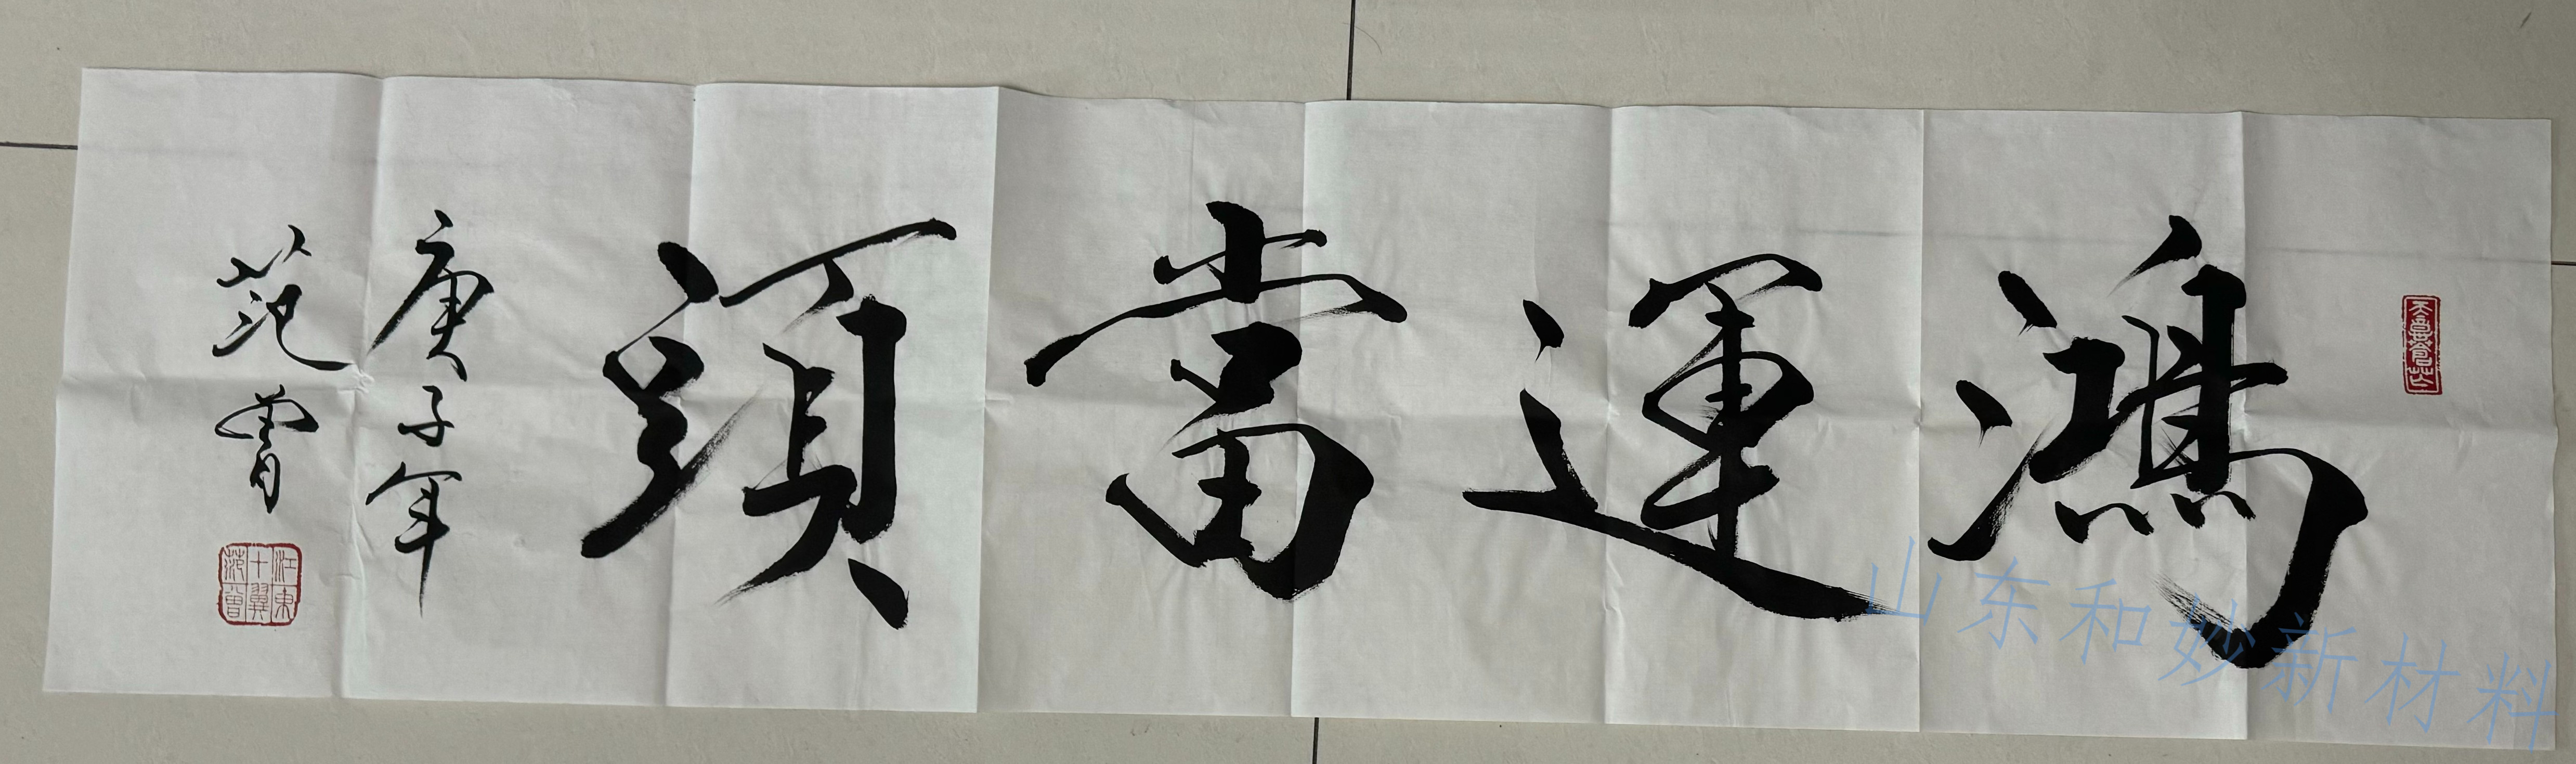 鴻運當頭
庚子年
范曾
江東
十翼
范曾
山东和妙新材料